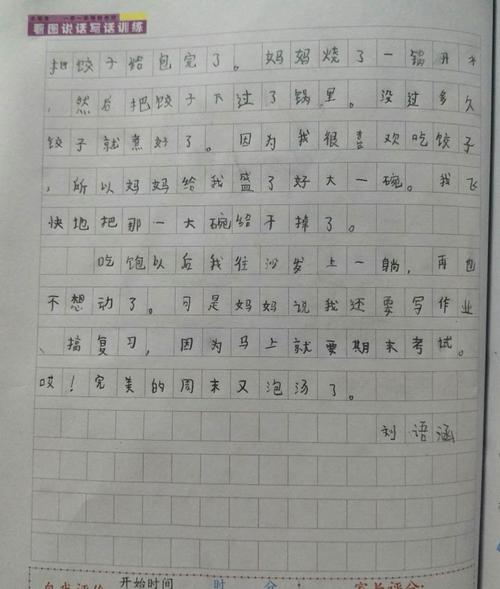 看图说话写话训练
把饺子给包完了。妈妈烧了一锅开水
，然后把饺子下过了锅里。没过多久
饺子就煮好了。因为我很喜欢吃饺子
，所以妈妈给我盛了好大一碗。我飞
快地把那一大碗给干掉了。
吃饱以后我往沙发上一躺，再也
不想动了。可是妈妈说我还要写作业
、搞复习，因为马上就要期末考试。
哎！完美的周末又泡汤了。
刘语涵
自我评价 开始时间 时 分 家长评分：